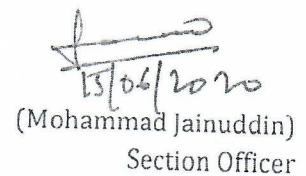 15/06/2020
(Mohammad Jainuddin)
Section Officer